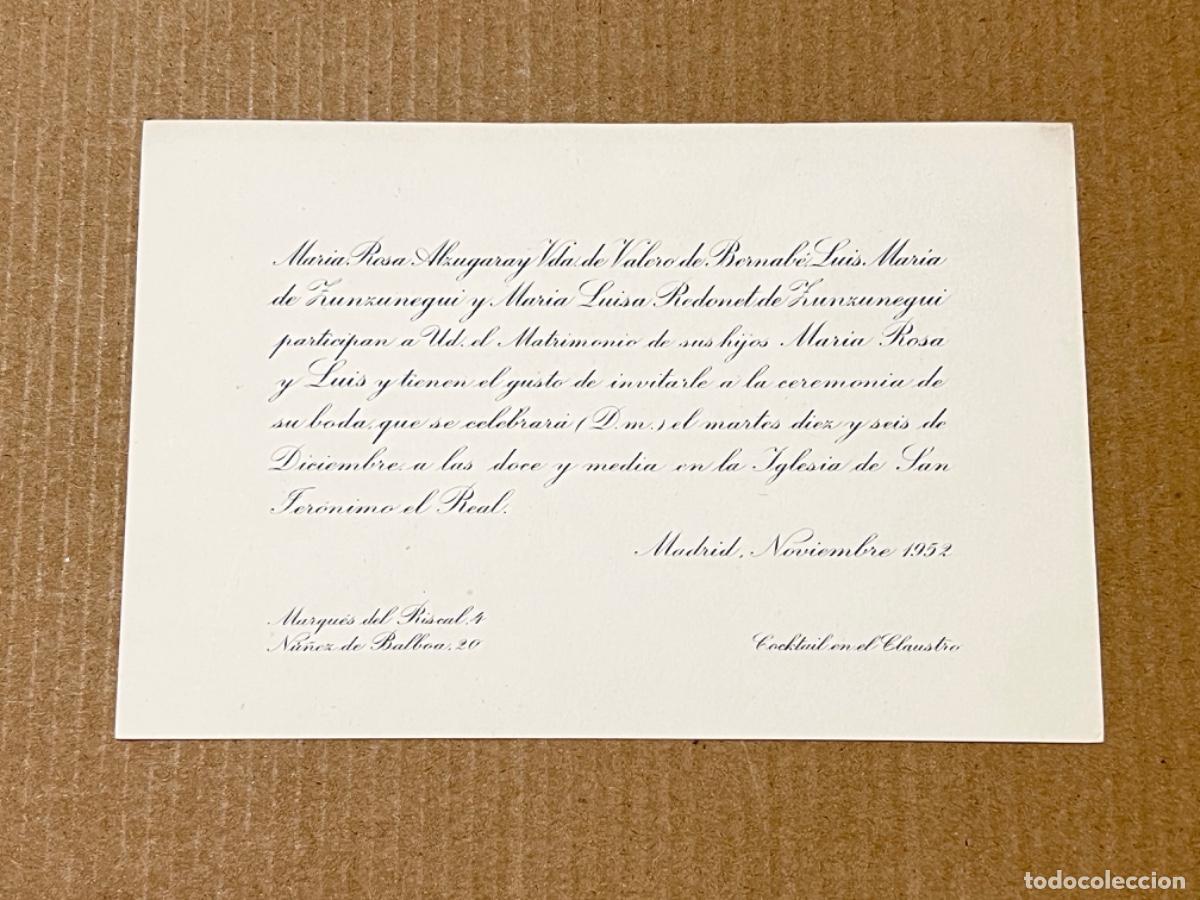 Maria Rosa Alzugaray Vda. de Valero de Bernabé, Luis Maria
de Zunzunegui y Maria Luisa Redonet de Zunzunegui
participan a Ud. el Matrimonio de sus hijos Maria Rosa
y Luis y tienen el gusto de invitarle a la ceremonia de
su boda, que se celebrará (D.m.) el martes diez y seis de
Diciembre, a las doce y media en la Iglesia de San
Jerónimo el Real.
Madrid, Noviembre 1952
Marqués del Riscal, 4
Núñez de Balboa, 20
Cocktail en el Claustro
todocoleccion